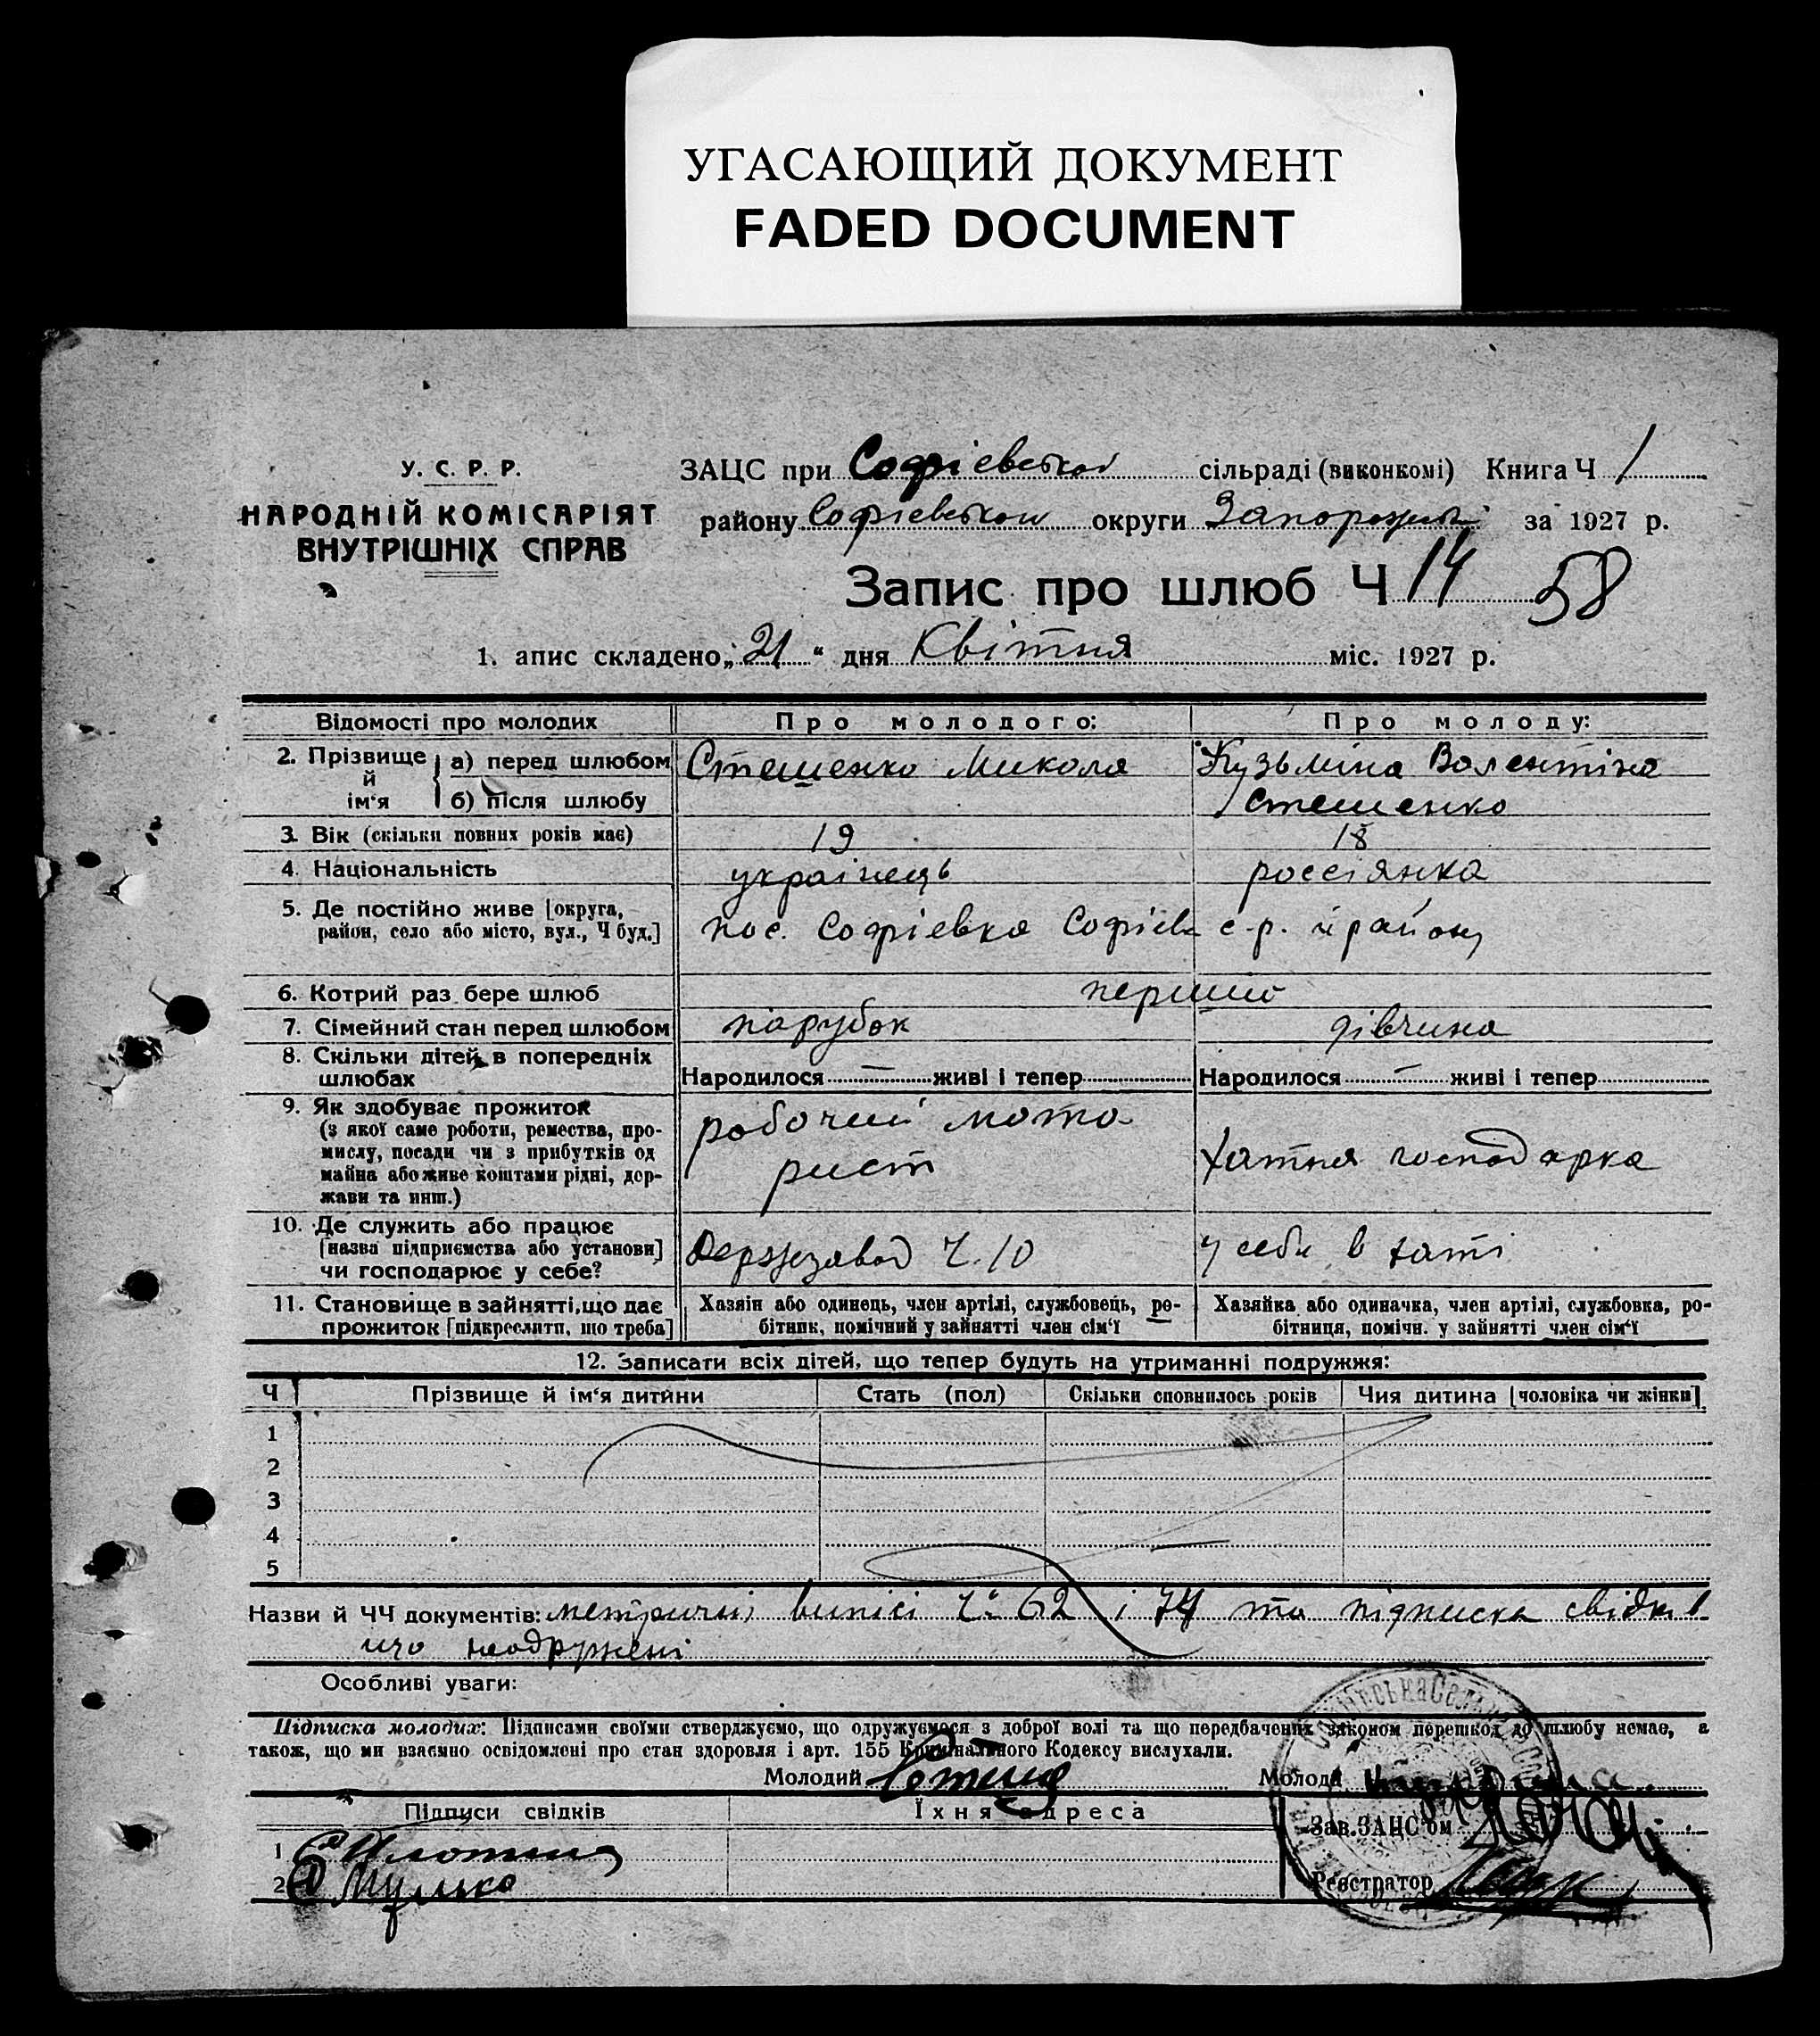 УГАСАЮЩИЙ ДОКУМЕНТ
FADED DOCUMENT
У. С. Р. Р.
НАРОДНІЙ КОМІСАРІЯТ
ВНУТРІШНІХ СПРАВ
ЗАЦС при Софіевської сільраді (виконкомі) Книга Ч 1
району Софіевської округи за 1927 р.
Запис про шлюб Ч 14 58
1. апис складено „21“ дня Квітня міс. 1927 р.
Відомості про молодих Про молодого: Про молоду:
2. Прізвище й ім‘я а) перед шлюбом Стешенко Микола Кузьміна Валентіна
б) після шлюбу Стешенко
3. Вік (скільки повних років має) 19 18
4. Національність українець россіянка
5. Де постійно живе [округа, район, село або місто, вул., Ч буд.] пос. Софіевка Софіев с-р. й району
6. Котрий раз бере шлюб перший
7. Сімейний стан перед шлюбом парубок дівчина
8. Скільки дітей в попередніх шлюбах Народилося — живі і тепер Народилося — живі і тепер
9. Як здобуває прожиток
(з якої саме роботи, ремества, про-
мислу, посади чи з прибутків од
майна або живе коштами рідні, дер-
жави та инш.)
робочий мото-
рист
хатня господарка
10. Де служить або працює
[назва підприємства або установи]
чи господарює у себе?
Держзавод Ч. 10
у себе в хаті
11. Становище в зайнятті, що дає
прожиток [підкреслити, що треба]
Хазяін або одинець, член артілі, службовець, ро-
бітник, помічний у зайнятті член сім‘ї
Хазяйка або одиначка, член артілі, службовка, ро-
бітниця, помічн. у зайнятті член сім‘ї
12. Записати всіх дітей, що тепер будуть на утриманні подружжя:
Ч Прізвище й ім‘я дитини Стать (пол) Скільки сповнилось років Чия дитина [чоловіка чи жінки]
1
2
3
4
5
Назви й ЧЧ документів: метричні виписі Ч. 62 і 74 та підписка свідків
що неодружені
Особливі уваги:
Підписка молодих: Підписами своїми стверджуємо, що одружуємося з доброї волі та що передбачених законом перешкод до шлюбу немає, а
також, що ми взаємно освідомлені про стан здоровля і арт. 155 Кримінального Кодексу вислухали.
Молодий Молода
Підписи свідків Їхня адреса
Зав. ЗАЦС‘ом
1
2
Реєстратор